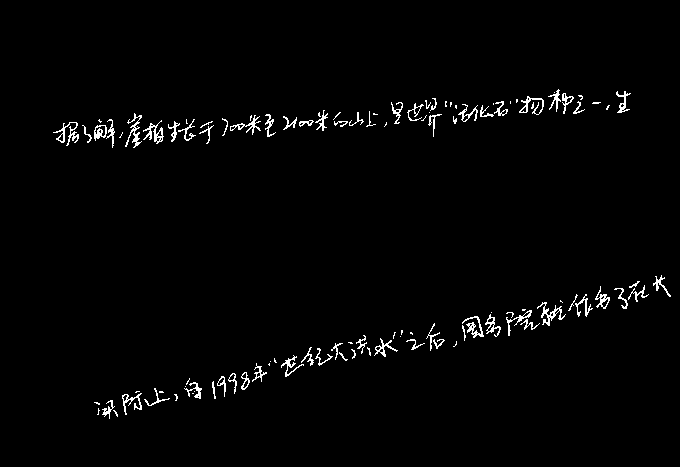 据了解,崖柏生长于700米至2100米的山上,是世界"活化石"物种之一,生
实际上,自1998年"世纪大洪水"之后,国务院就作出了在大